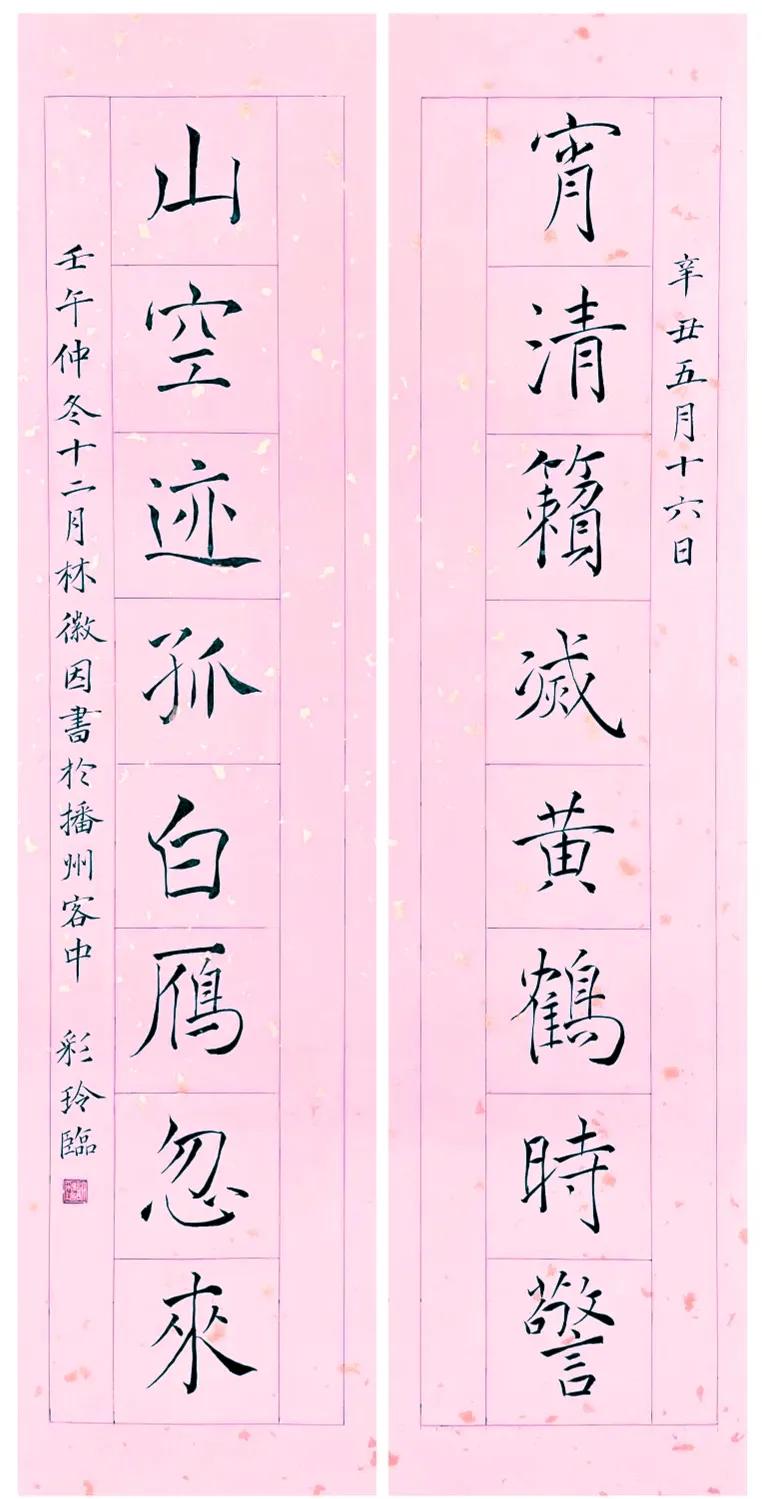 辛丑五月十六日
宵清籟滅黄鶴時警
山空迹孤白鴈忽來
壬午仲冬十二月林徽因書於播州客中 彩玲臨